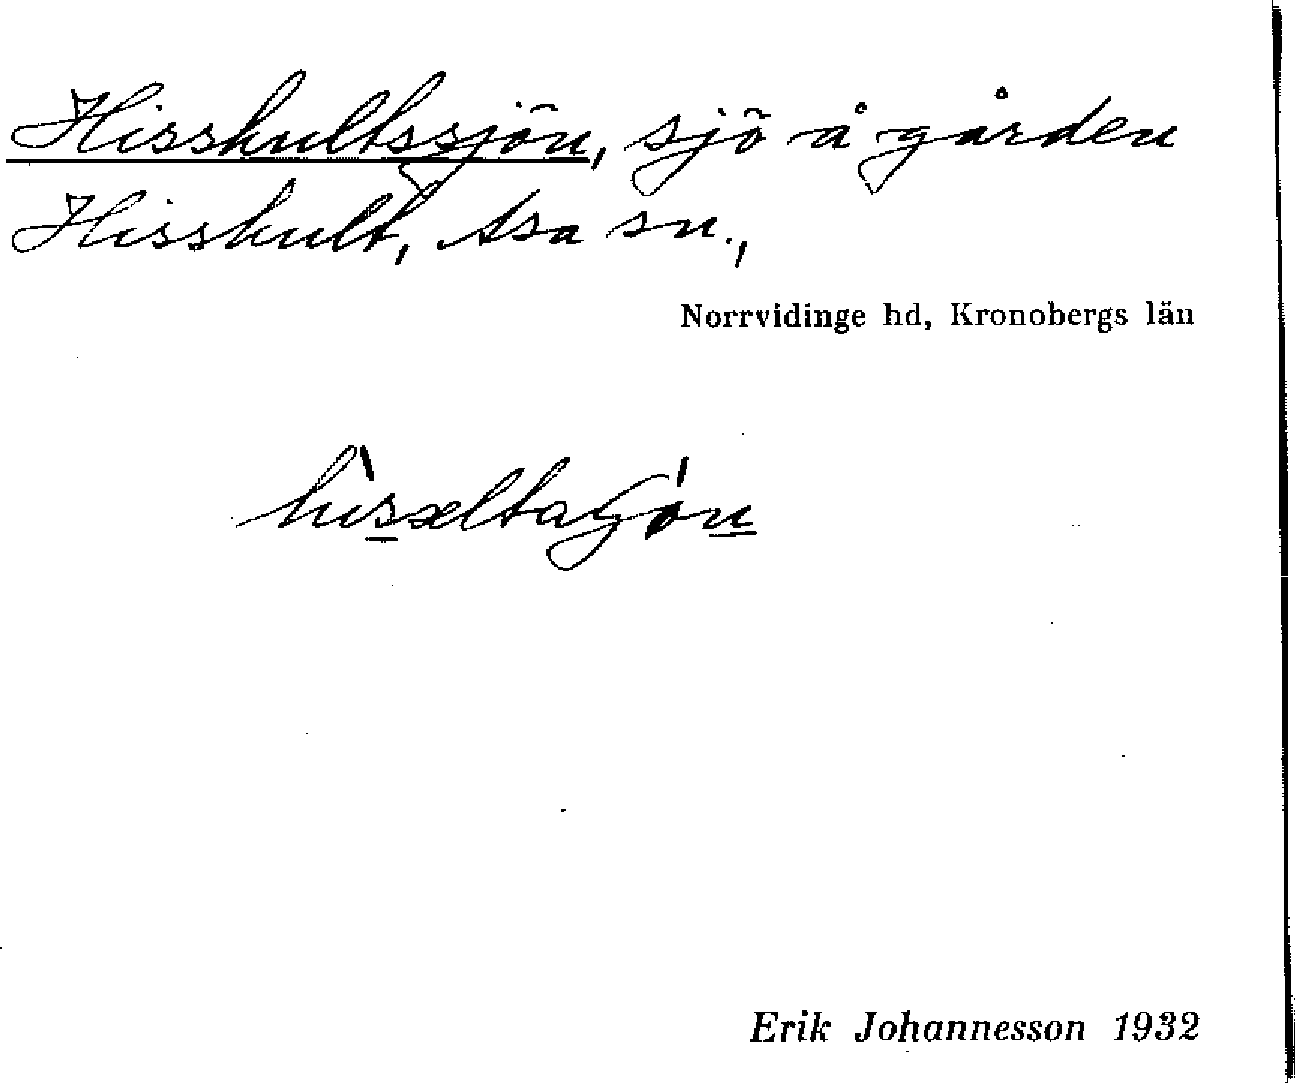 Hisshultssjön, sjö å gården
Hisshult, Asa sn.,
Norrvidinge hd, Kronobergs län
Erik Johannesson 1932